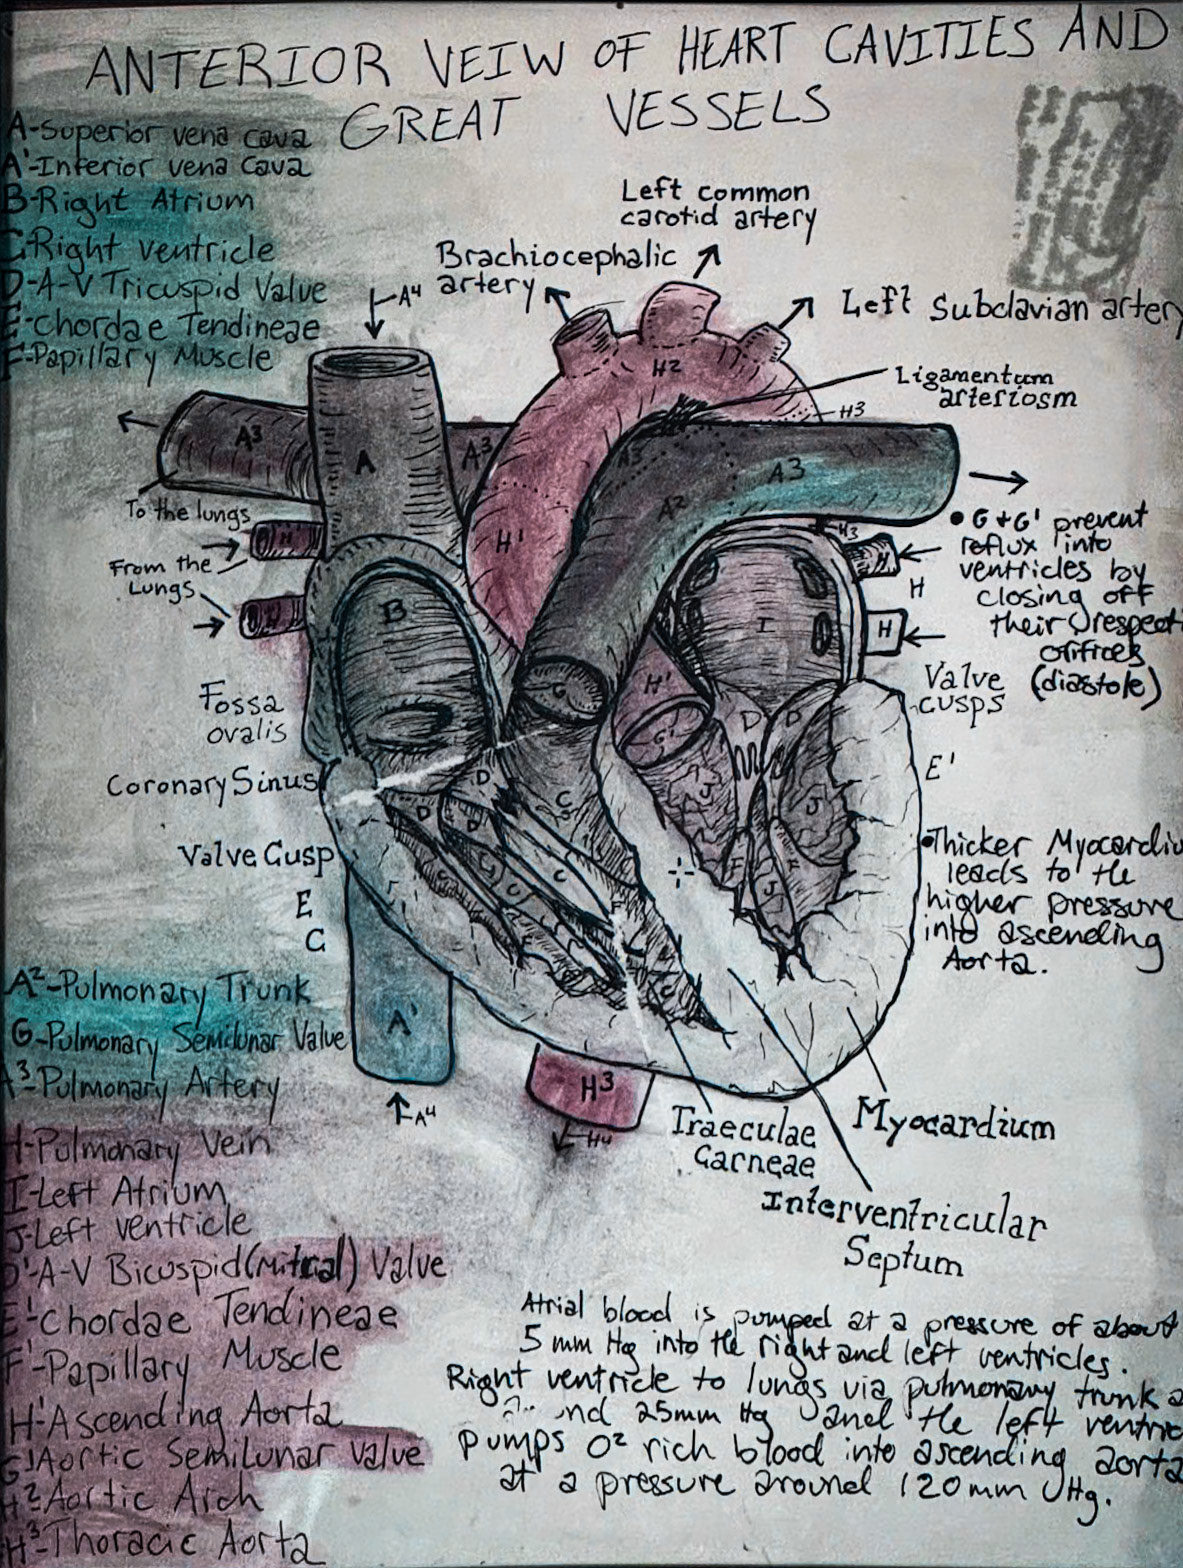 ANTERIOR VEIW OF HEART CAVITIES AND
GREAT VESSELS
A-Superior vena cava
A'-Inferior vena Cava
B-Right Atrium
C-Right ventricle
D-A-V Tricuspid Valve
E-Chordae Tendineae
F-Papillary Muscle
Left common
carotid artery
Brachiocephalic
artery
A4
Left Subclavian artery
Ligamentum
arteriosm
H2
H3
A3
A
A3
A3
A2
To the lungs
From the
Lungs
H
H
H'
B
I
H
H
• G+G' prevent
reflux into
ventricles by
closing off
their respecti
orifices
(diastole)
Valve
cusps
E'
Fossa
ovalis
Coronary Sinus
Valve Cusp
E
C
G
H'
G'
D
D
D
D
D
C
C
C
C
J
J
J
• Thicker Myocardiu
leads to the
higher pressure
into ascending
Aorta.
A2-Pulmonary Trunk
G-Pulmonary Semilunar Valve
A3-Pulmonary Artery
A'
A4
H3
H4
Traeculae
Carneae
Myocardium
Interventricular
Septum
H-Pulmonary Vein
I-Left Atrium
J-Left ventricle
D'-A-V Bicuspid(mitral) Valve
E'-Chordae Tendineae
F'-Papillary Muscle
H'Ascending Aorta
G'Aortic SemiLunar valve
H2-Aortic Arch
H3-Thoracic Aorta
Atrial blood is pumped at a pressure of about
5 mm Hg into the right and left ventricles.
Right ventricle to lungs via pulmonary trunk a
25mm Hg and the left ventric
pumps O2 rich blood into ascending aorta
at a pressure around 120mm Hg.